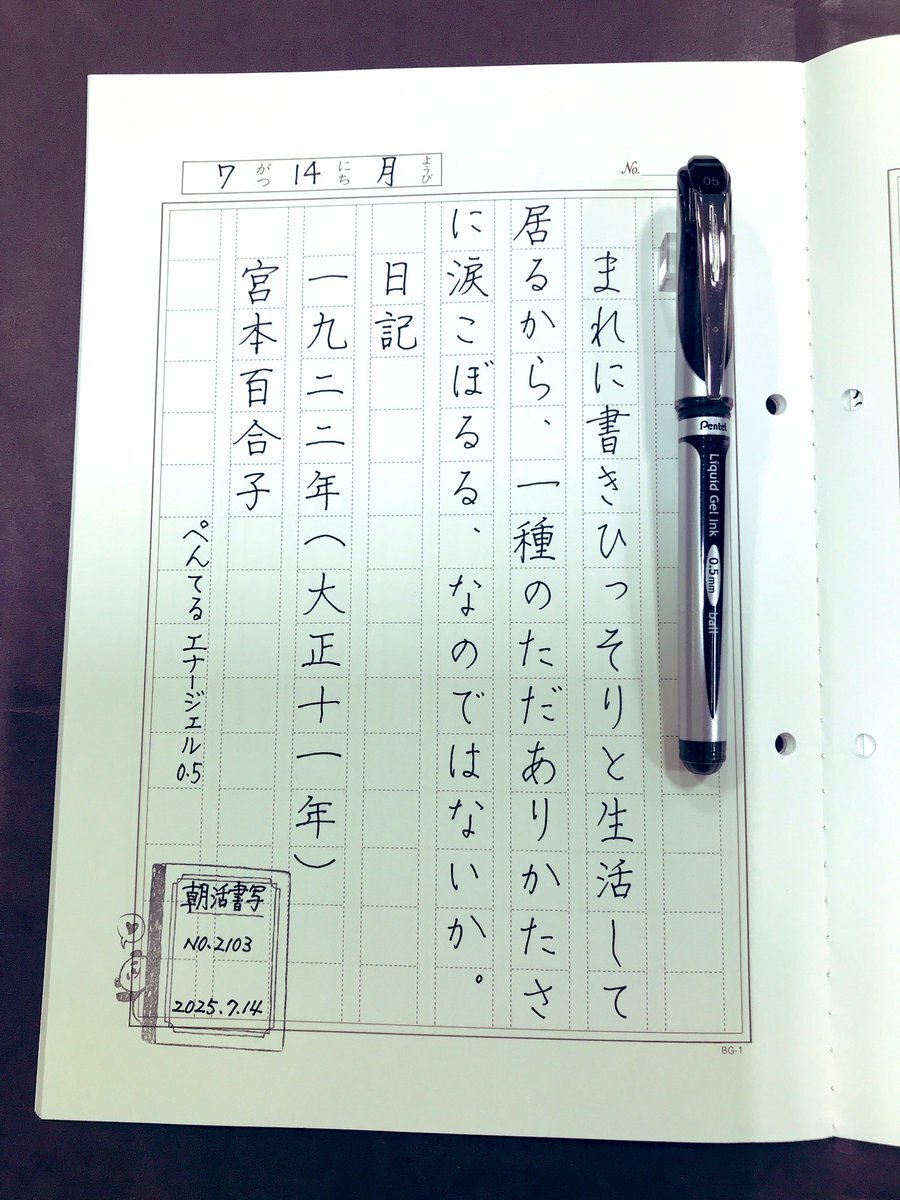 7がつ14にち月ようび
No.
まれに書きひっそりと生活して
居るから、一種のただありかたさ
に涙こぼるる、なのではないか。
日記
一九二二年(大正十一年)
宮本百合子
ぺんてるエナージェル0.5
朝活書写
NO.2103
2025.7.14
BG-1
05
Pentel
Liquid Gel Ink 0.5mm ball